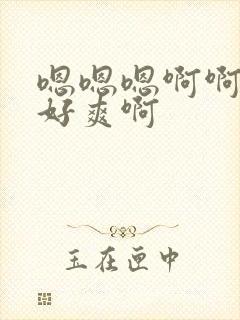 嗯嗯嗯啊啊
好爽啊
玉在匣中